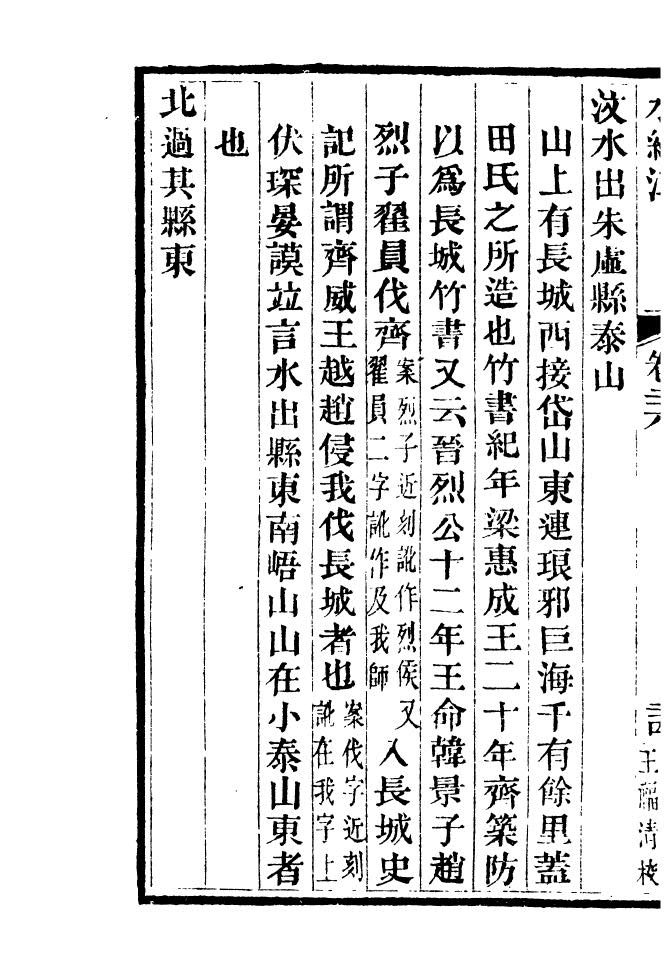 水經注 卷二十六 王福清校
汶水出朱虛縣泰山
山上有長城西接岱山東連琅邪巨海千有餘里蓋
田氏之所造也竹書紀年梁惠成王二十年齊築防
以爲長城竹書又云晉烈公十二年王命韓景子趙
烈子翟員伐齊案烈子近刻訛作烈侯又翟員二字訛作及我師入長城史
記所謂齊威王越趙侵我伐長城者也案伐字近刻訛在我字上
伏琛晏謨竝言水出縣東南峿山山在小泰山東者
也
北過其縣東